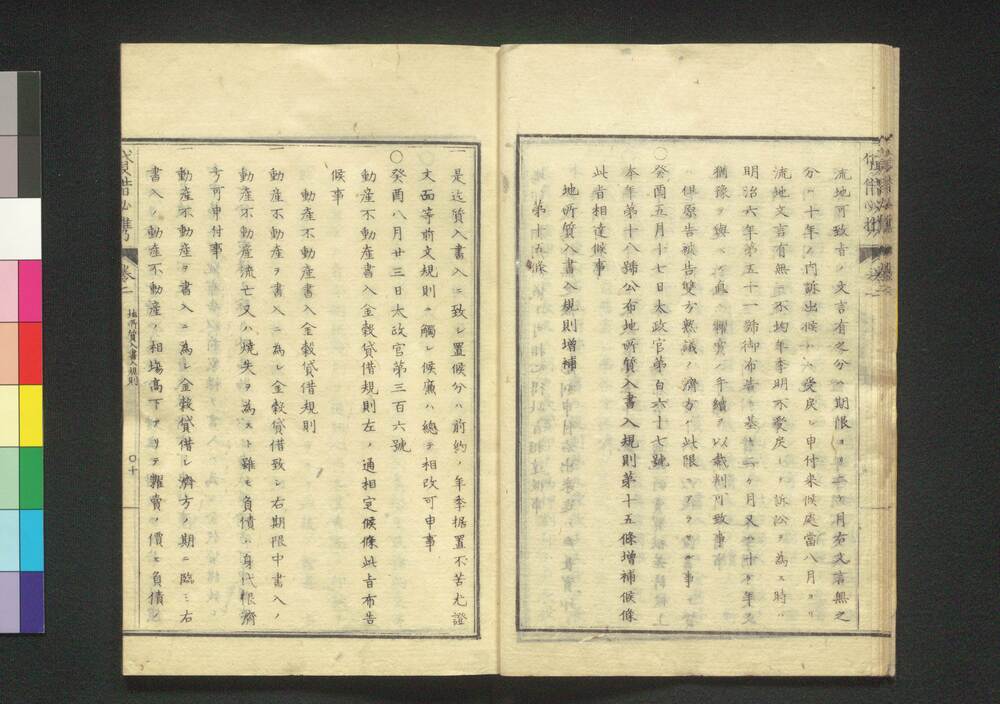 流地可致旨ノ文言有之分ハ期限ヨリ二ヶ月右文言無之
分ハ十年ノ内訴出候ハヽ受戻シ申付来候處當八月ヨリ
流地文言有無ニ不拘年季明不受戻シノ訴訟ヲ為ス時ハ
明治六年第五十一號御布告ニ基キ二ヶ月又ハ十ヶ年ノ
猶豫ヲ與ヘス直ニ糶賣ノ手續ヲ以裁判可致事
但原告被告雙方熟議ノ濟方ハ此限ニアラサル事
〇癸酉五月十七日太政官第百六十七號
本年第十八號公布地所質入書入規則第十五條增補候條
此旨相達候事
地所質入書入規則增補
第十五條
一是迄質入書入ニ致シ置候分ハ前約ノ年季据置不苦尤證
文面等前文規則ニ觸レ候廉ハ總テ相改可申事
〇癸酉八月廿三日太政官第三百六號
動産不動産書入金穀貸借規則左ノ通相定候條此旨布告
候事
動産不動産書入金穀貸借規則
一動産不動産ヲ書入ニ為シ金穀貸借致シ右期限中書入ノ
動産不動産流亡又ハ燒失ヲ為スト雖モ負債ハ身代限濟
方可申付事
一動産不動産ヲ書入ニ為シ金穀貸借シ濟方ノ期ニ臨ミ右
書入ノ動産不動産ノ相場高下アリテ糶賣ノ價ヒ負債ヒ
貸借必携
卷二
地所質入書入規則
〇十